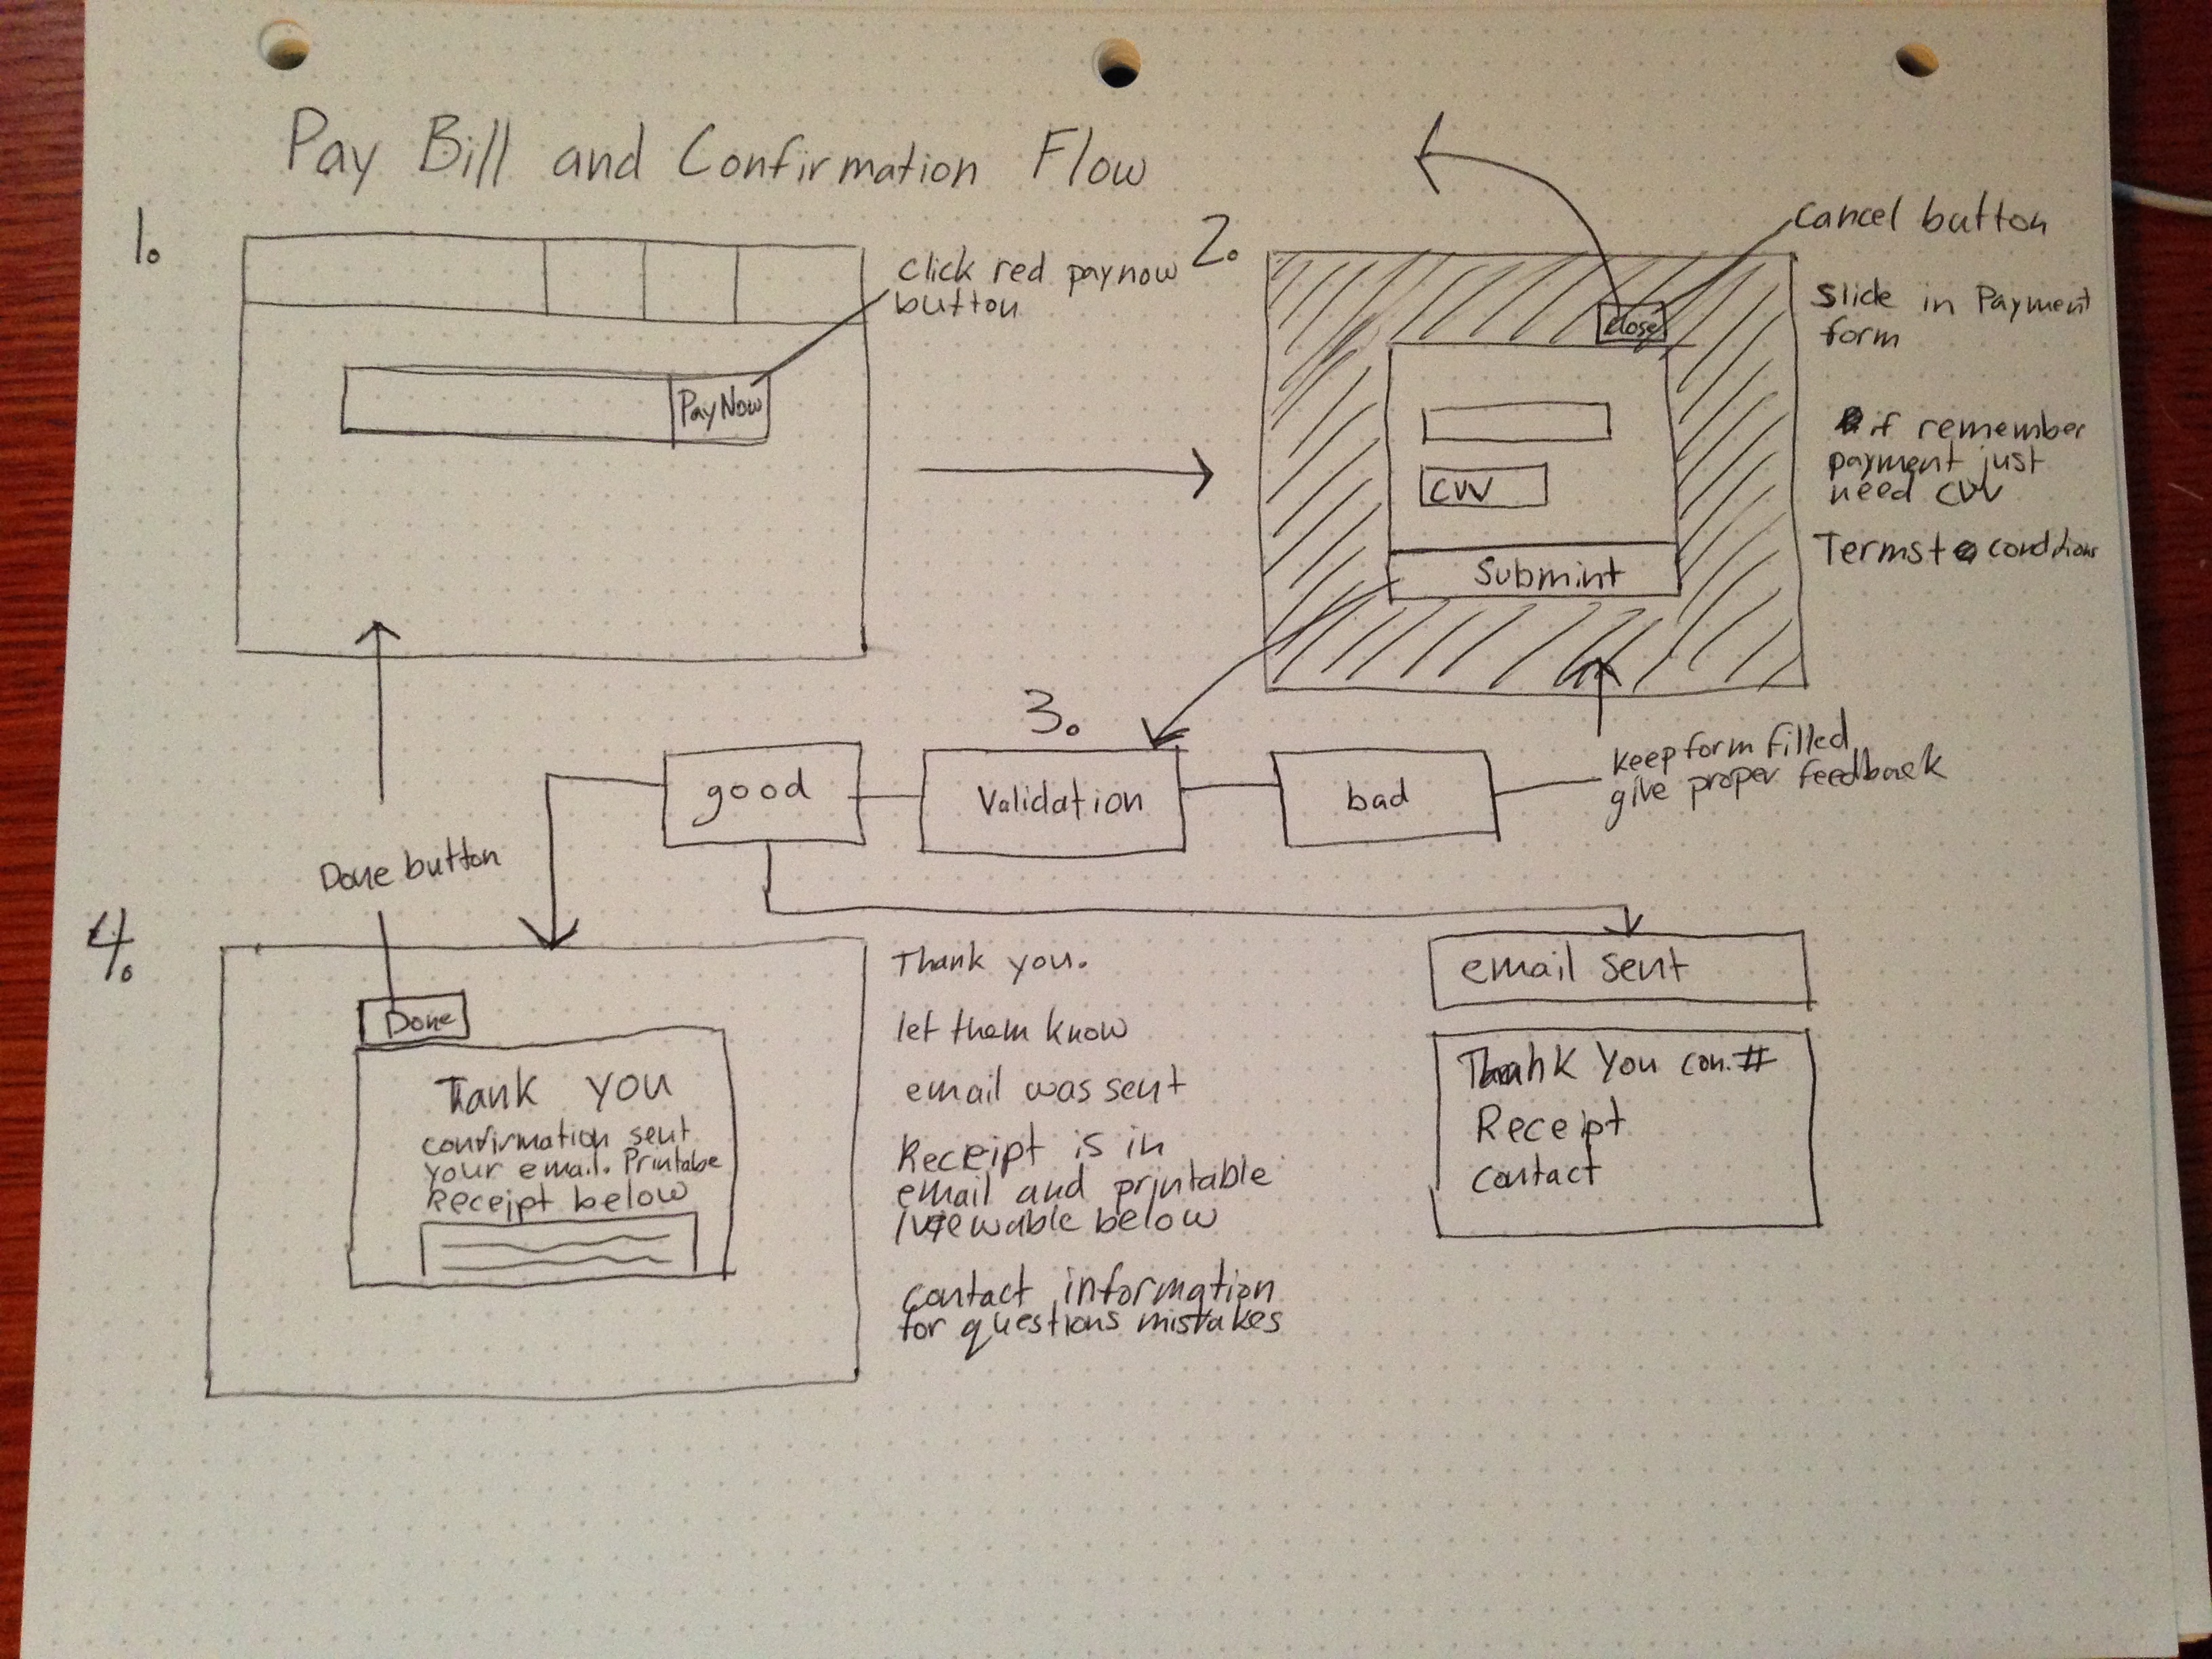 Pay Bill and Confirmation Flow
1.
click red paynow
button
PayNow
2.
Cancel button
close
Slide in Payment
form
if remember
payment just
need CVV
Terms + conditions
CVV
Submint
3.
good
Validation
bad
keep form filled,
give proper feedback
Done button
4.
Done
Tank you
confirmation sent
your email. Printabe
Receipt below
Thank you.
let them know
email was sent
Receipt is in
email and printable
/viewable below
contact information
for questions mistakes
email sent
Thank You con.#
Receipt
contact